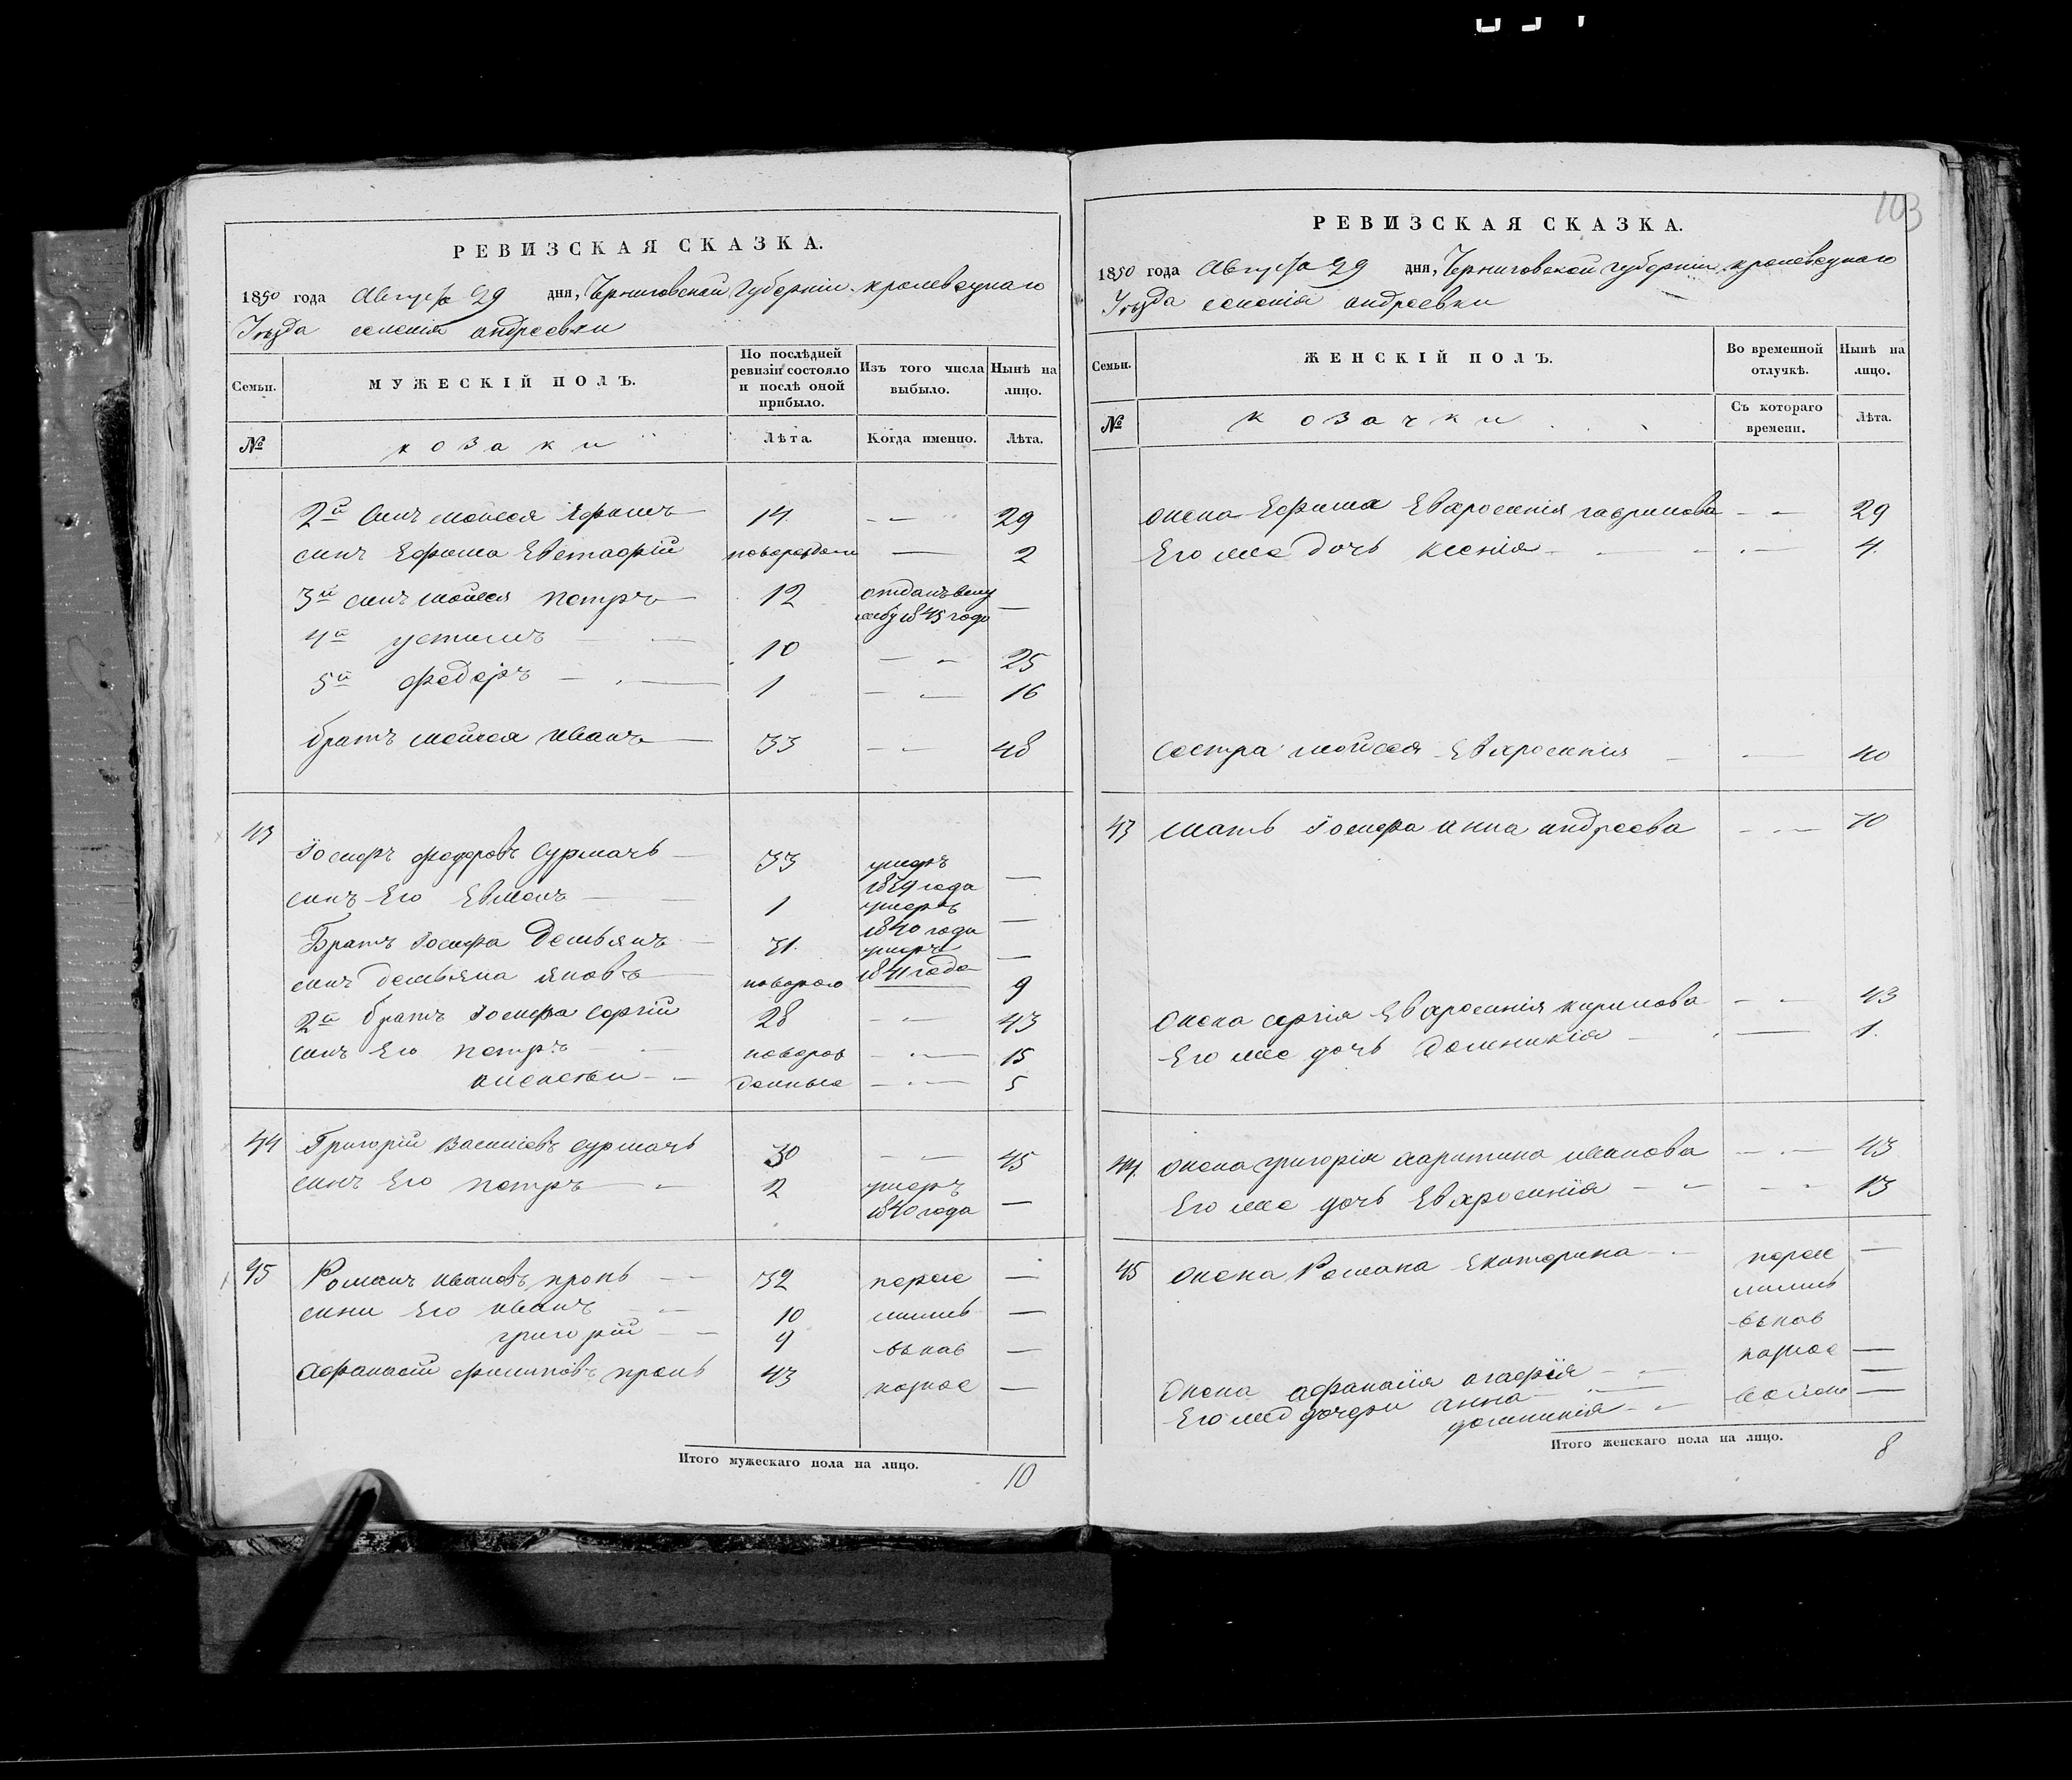 103
РЕВИЗСКАЯ СКАЗКА.
1850 года Августа 29 дня, Черниговской губерніи кролевецкаго
Уѣзда селенія андреевки
Семьи.
МУЖЕСКІЙ ПОЛЪ.
По послѣдней ревизіи состояло и послѣ оной прибыло.
Изъ того числа выбыло.
Нынѣ на лицо.
№
козаки
Лѣта.
Когда именно.
Лѣта.
2й синъ мойсея Ефимъ 14 29
синъ Ефима Евстафій новорожден 2
3й синъ мойсея петръ 12 отданъ вслу
жбу 1845 года
4й устимъ 10 25
5й федоръ 1 16
братъ мойсея иванъ 33 48
43 Іосифъ федоровъ Сурмачъ 33 умеръ
1849 года
синъ Его Евменъ 1 умеръ
1840 года
Братъ Іосифа Демьянъ 31 умеръ
1841 года
синъ демьяна яковъ новорож 9
2й братъ Іосифа Сергій 28 43
синъ Его петръ новорож 15
алексѣй денные 5
44 Григорій Василіевъ сурмачъ 30 45
синъ Его петръ 2 умеръ
1840 года
45 Романъ ивановъ кропь 32 пересе
сини Его иванъ 10 лились
григорій 9 вънов
Афанасій филиповъ кропь 43
Итого мужескаго пола на лицо. 10
РЕВИЗСКАЯ СКАЗКА.
1850 года Августа 29 дня, Черниговской губерніи кролевецкаго
Уѣзда селенія андреевки
Семьи.
ЖЕНСКІЙ ПОЛЪ.
Во временной отлучкѣ.
Нынѣ на лицо.
№
козачки
Съ котораго времени.
Лѣта.
жена Ефима Евхросинія гаврилова 29
Его же дочь ксенія 4
Сестра мойсея Евхросинія 40
43 мать Іосифа анна андреева 70
жена сергія Евхросинія кирилова 43
Его же дочь Домникія 1
44 жена григорія харитина иванова 43
Его же дочь Евхросинія 13
45 жена Романа Екатерина пересе
лились
вънов
жена афанасія агафія
Его же дочери анна
домникія
Итого женскаго пола на лицо. 8